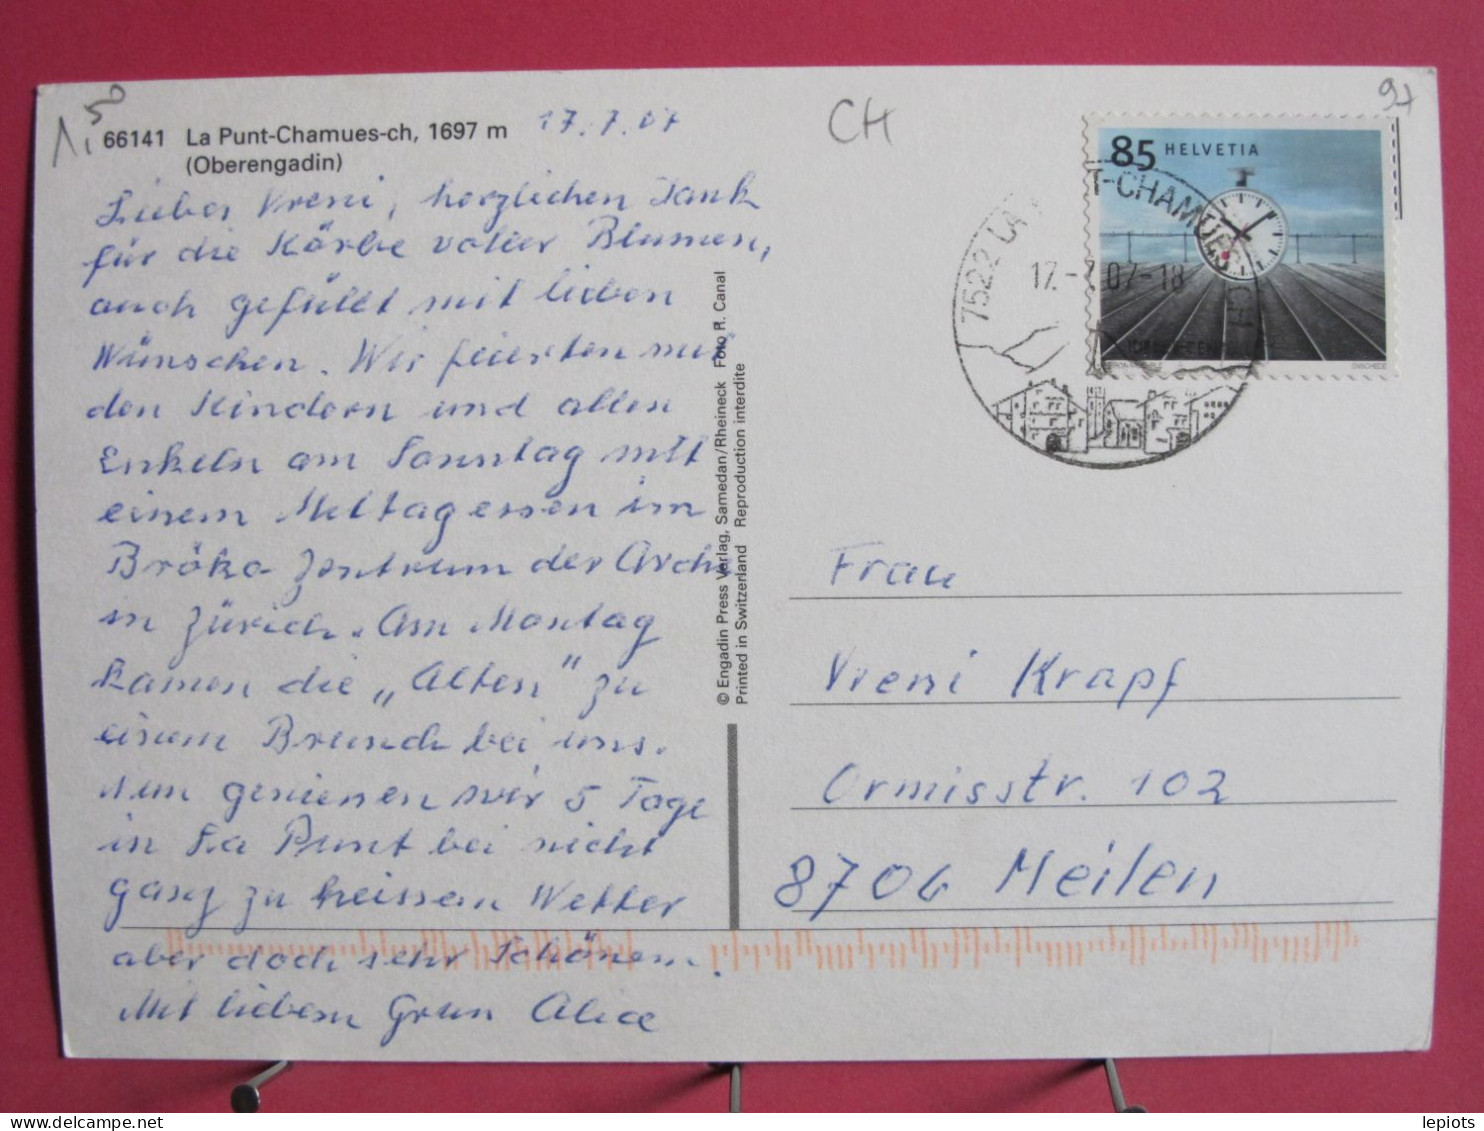 1,50
66141 La Punt-Chamues-ch, 1697 m
(Oberengadin)
17.7.07
Liebes Vreni, herzlichen Dank
für die Körbe voller Blumen,
auch gefüllt mit lieben
Wünschen. Wir feierten mit
den Kindern und allen
Enkeln am Sonntag mit
einem Mittagessen im
Bröko Zentrum der Arche
in Zürich. Am Montag
kamen die „Alten" zu
einem Brunch bei uns.
Nun geniessen wir 5 Tage
in La Punt bei nicht
ganz zu heissem Wetter
aber doch sehr Schönem.
Mit liebem Gruss Alice
© Engadin Press Verlag, Samedan/Rheineck Foto R. Canal
Printed in Switzerland Reproduction interdite
CH
97
85 HELVETIA
7522 LA T-CHAMUES-CH
17.-7.07-18
ENSCHEDE
Frau
Vreni Krapf
Ormisstr. 102
8706 Meilen
lepiots